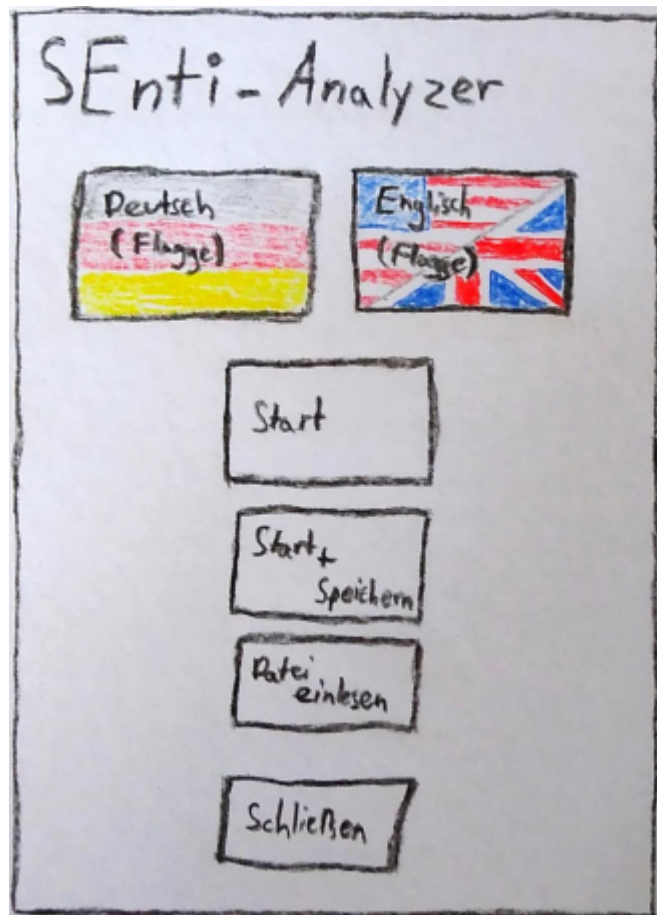 SEnti-Analyzer
Deutsch
(Flagge)
Englisch
(Flagge)
Start
Start+
Speichern
Datei
einlesen
Schließen